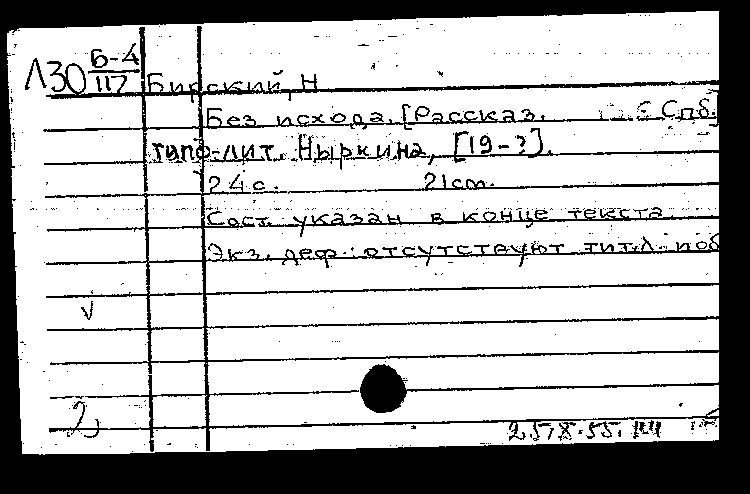 Л30 Б-4
117
Бирский, Н
Без исхода. [Рассказ. Спб.]
типо-лит. Ныркина, [19-?].
24с. 21см.
Сост. указан в конце текста
Экз. деф.: отсутствуют тит.л. поб
V
2